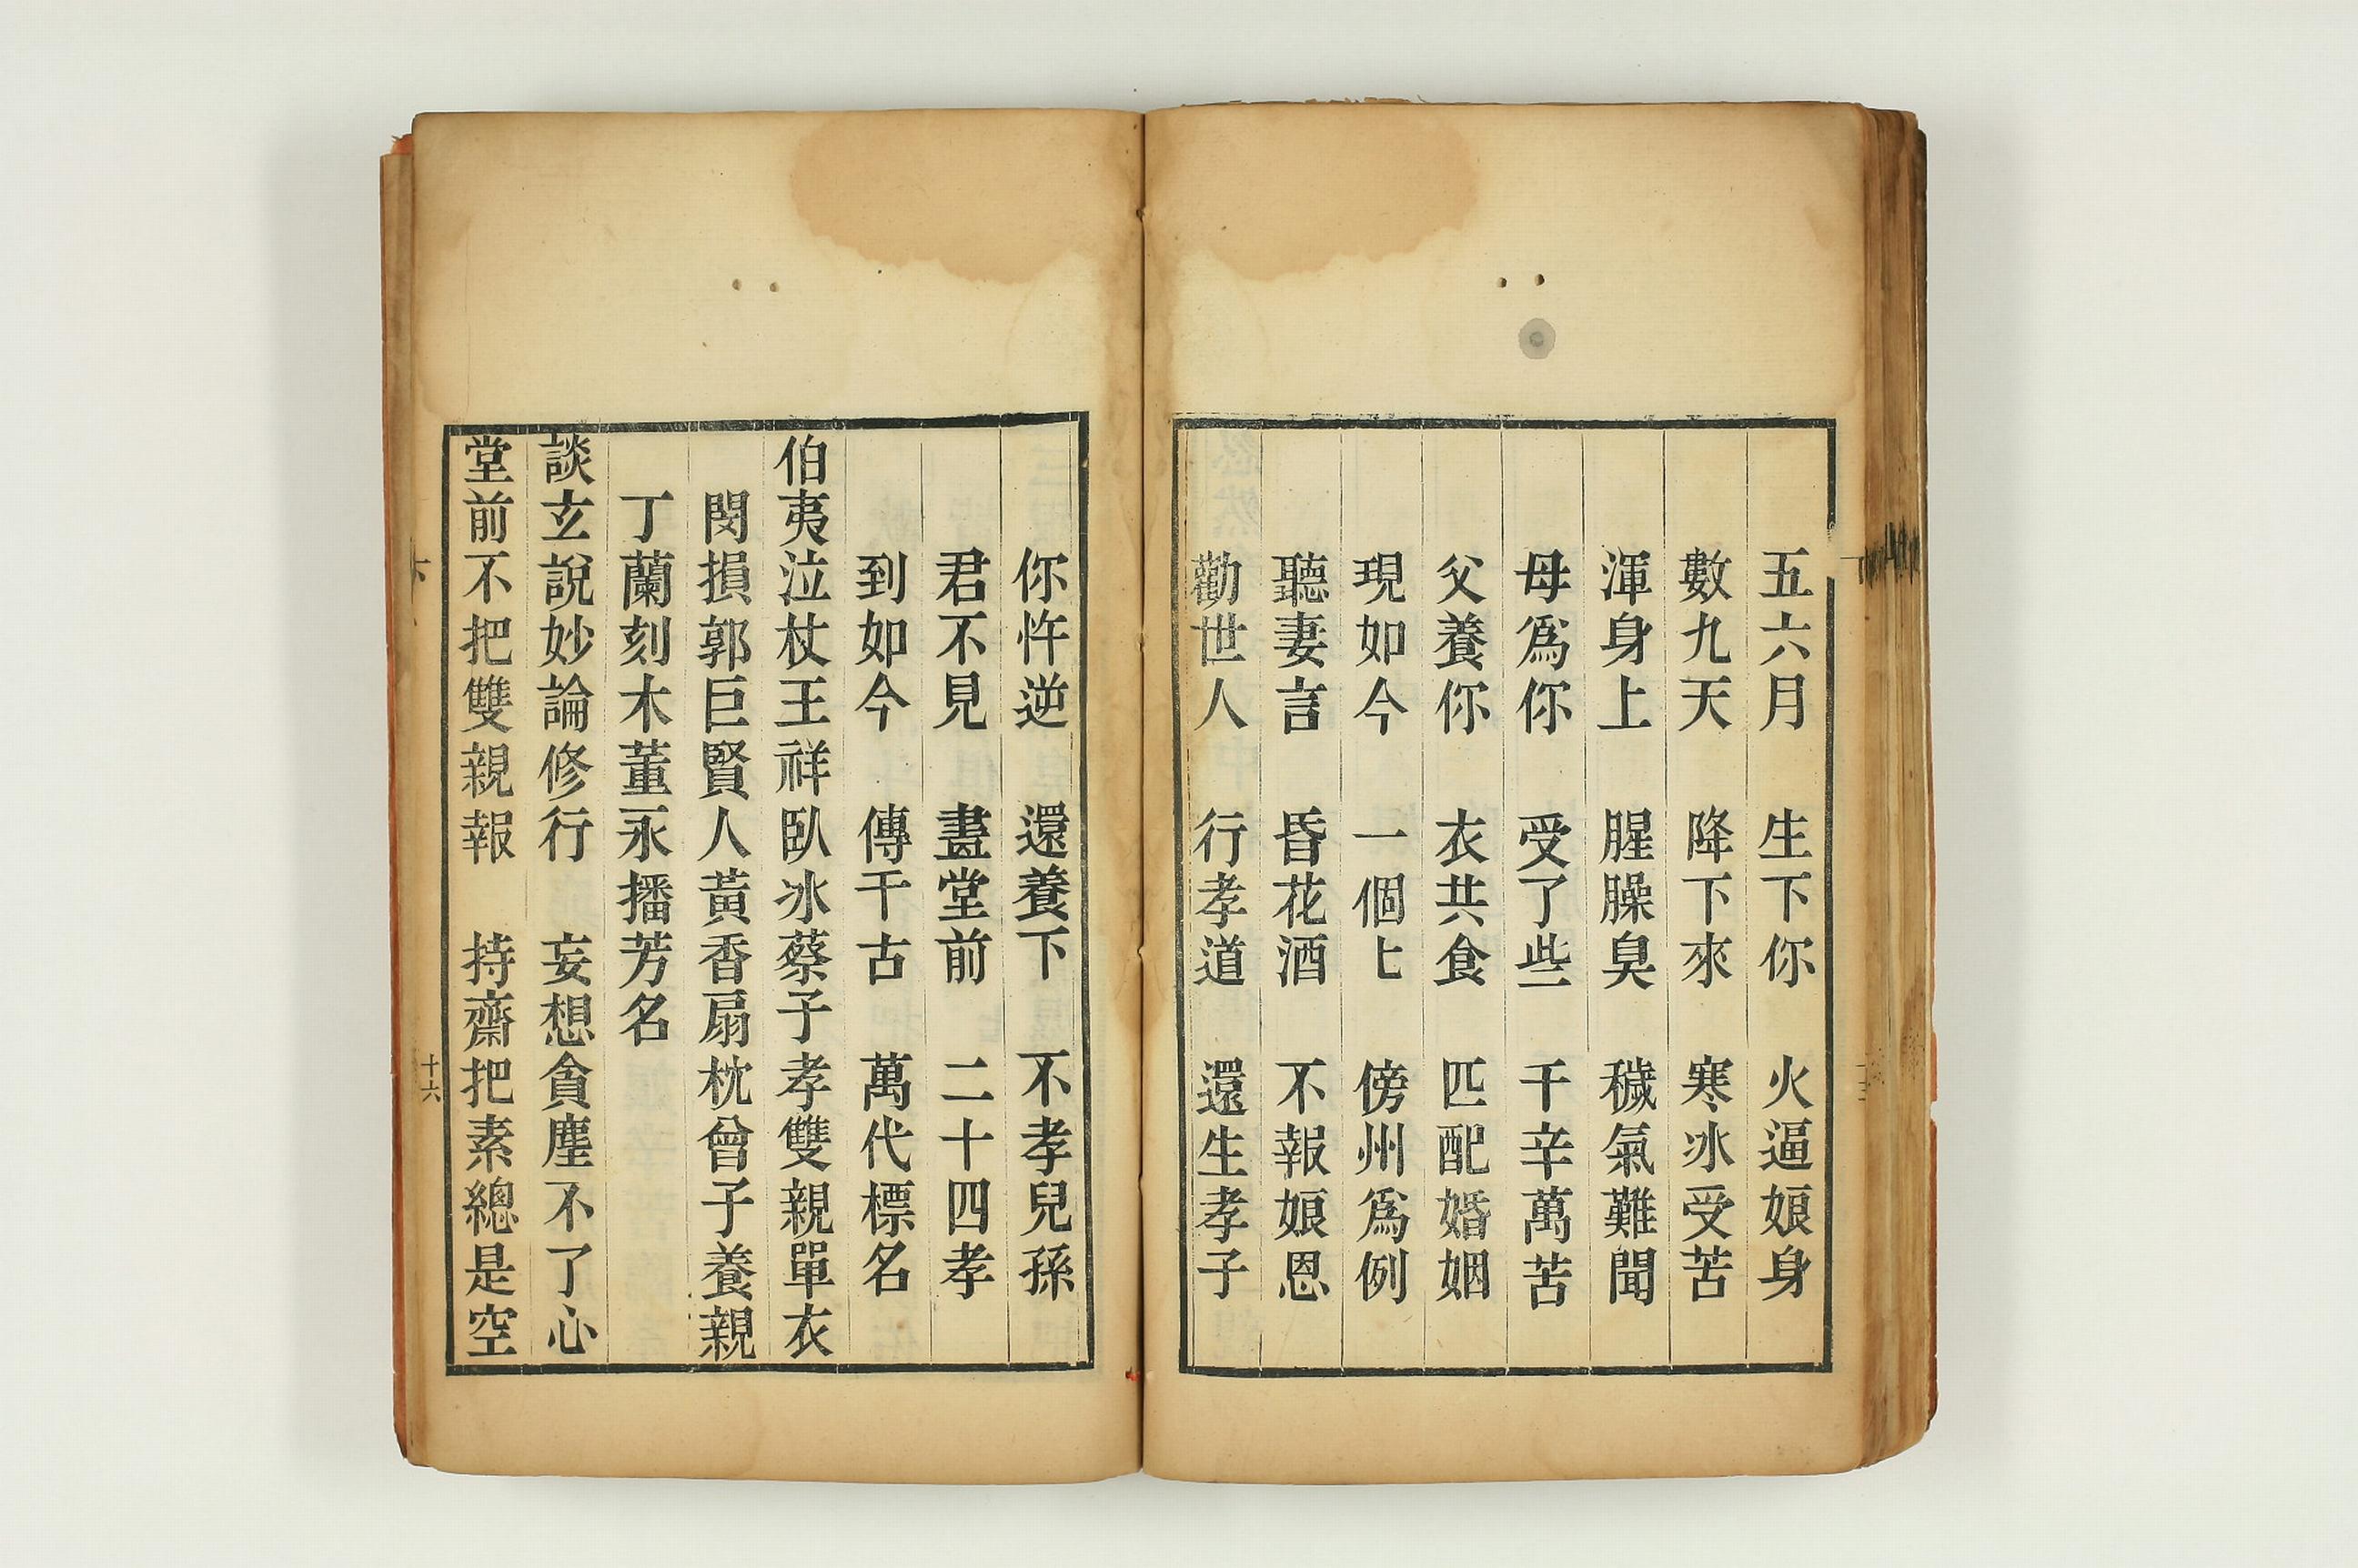 五六月　生下你　火逼娘身
數九天　降下來　寒冰受苦
渾身上　腥臊臭　穢氣難聞
母爲你　受了些　千辛萬苦
父養你　衣共食　匹配婚姻
現如今　一個上　傍州爲例
聽妻言　昏花酒　不報娘恩
勸世人　行孝道　還生孝子
你忤逆　還養下　不孝兒孫
君不見　畫堂前　二十四孝
到如今　傳千古　萬代標名
伯夷泣杖王祥臥冰蔡子孝雙親單衣
閔損郭巨賢人黃香扇枕曾子養親
丁蘭刻木董永播芳名
談玄說妙論修行　妄想貪塵不了心
堂前不把雙親報　持齋把素總是空
十六